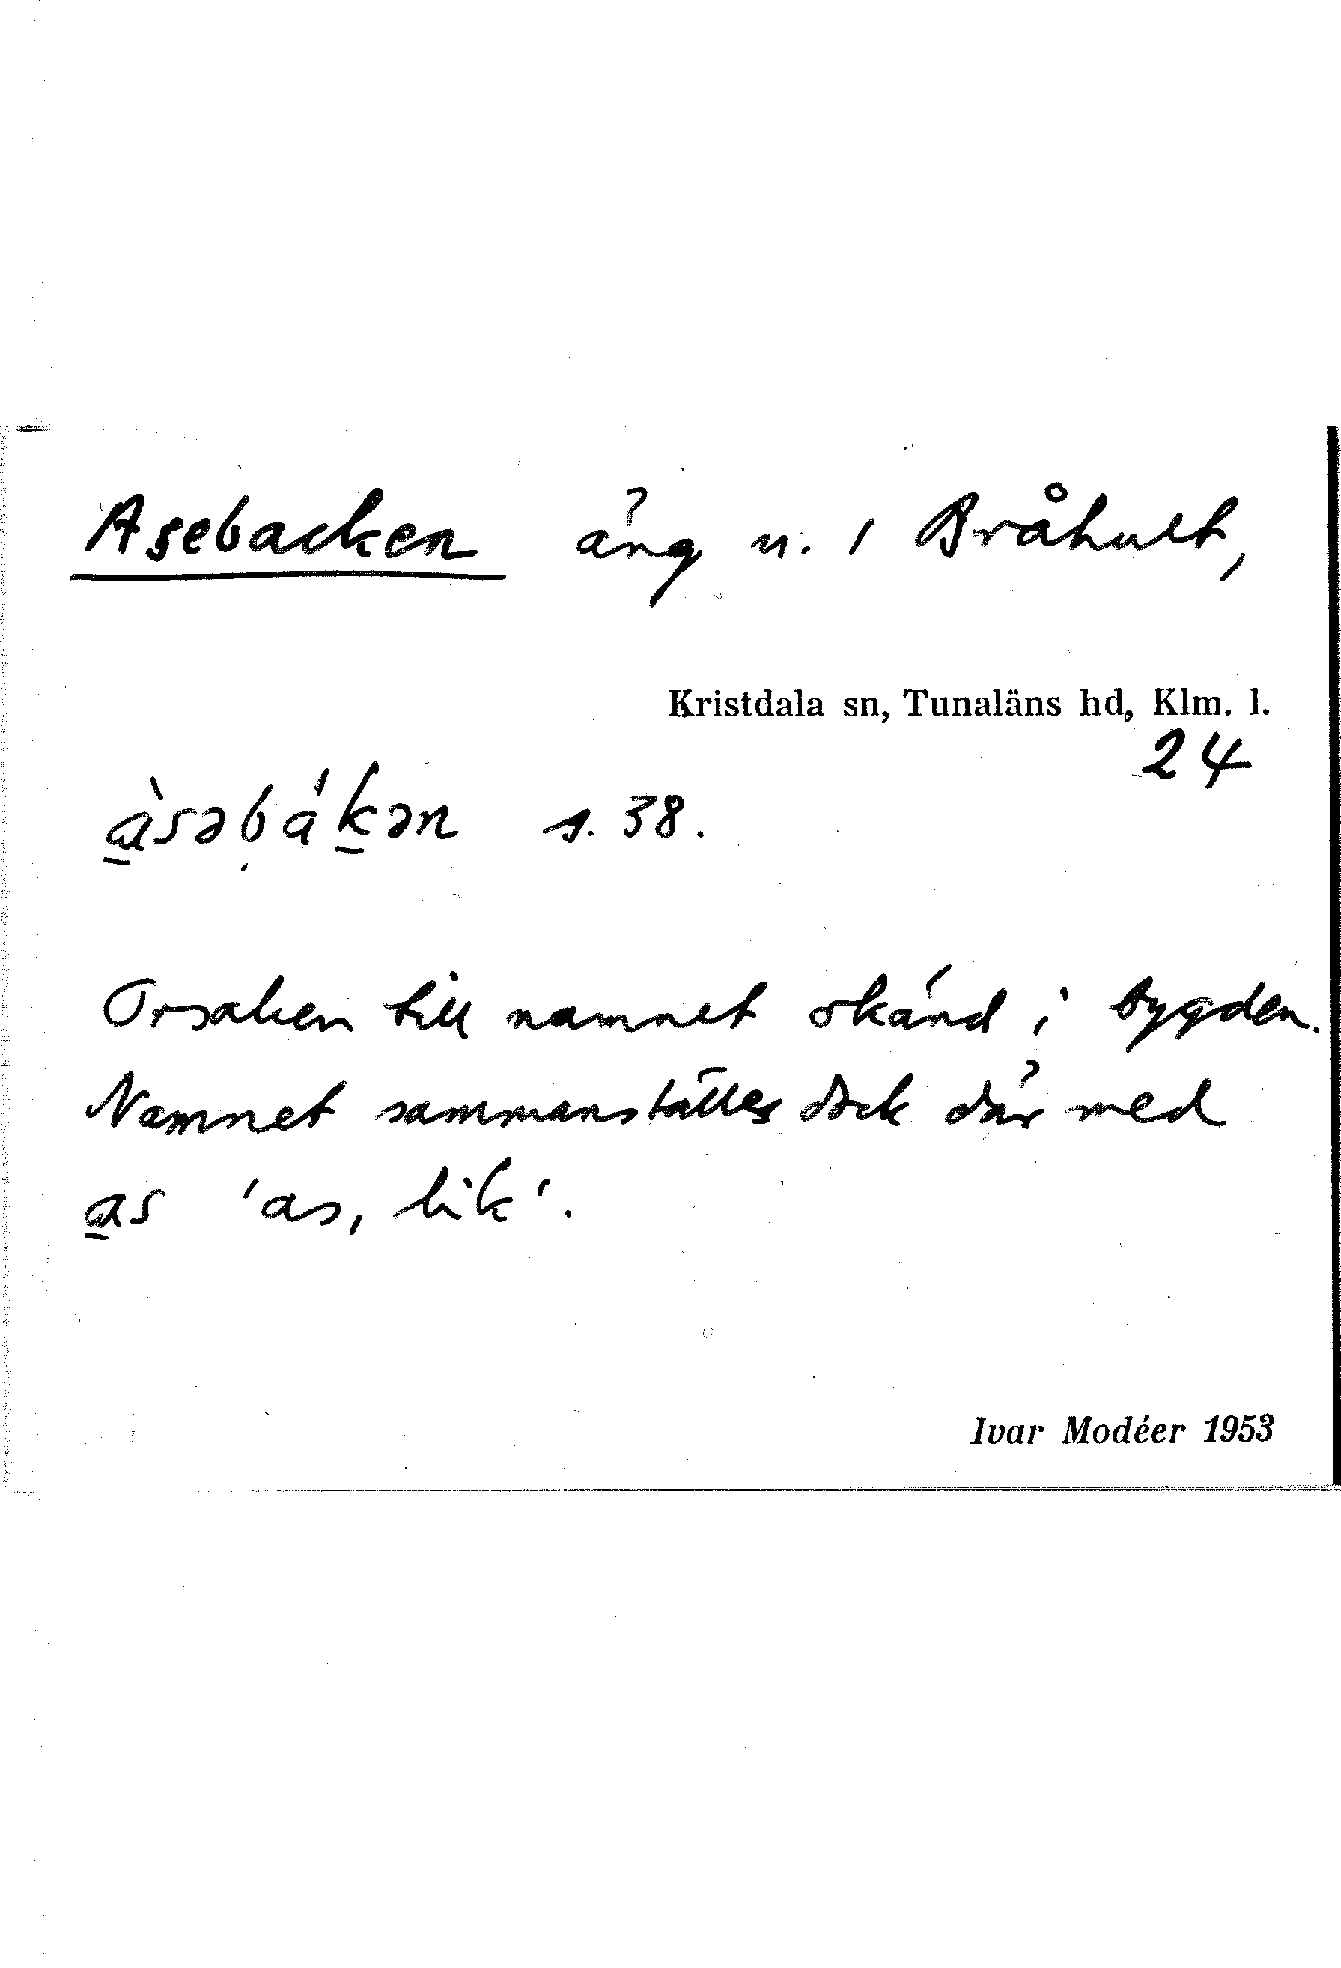 Asebacken äng n. i Bråhult,
Kristdala sn, Tunaläns hd, Klm. l.
24
à̲səbák̲ən s. 38.
Orsaken till namnet okänd i bygden.
Namnet sammanställes dock där med
a̲s 'as, lik'.
Ivar Modéer 1953